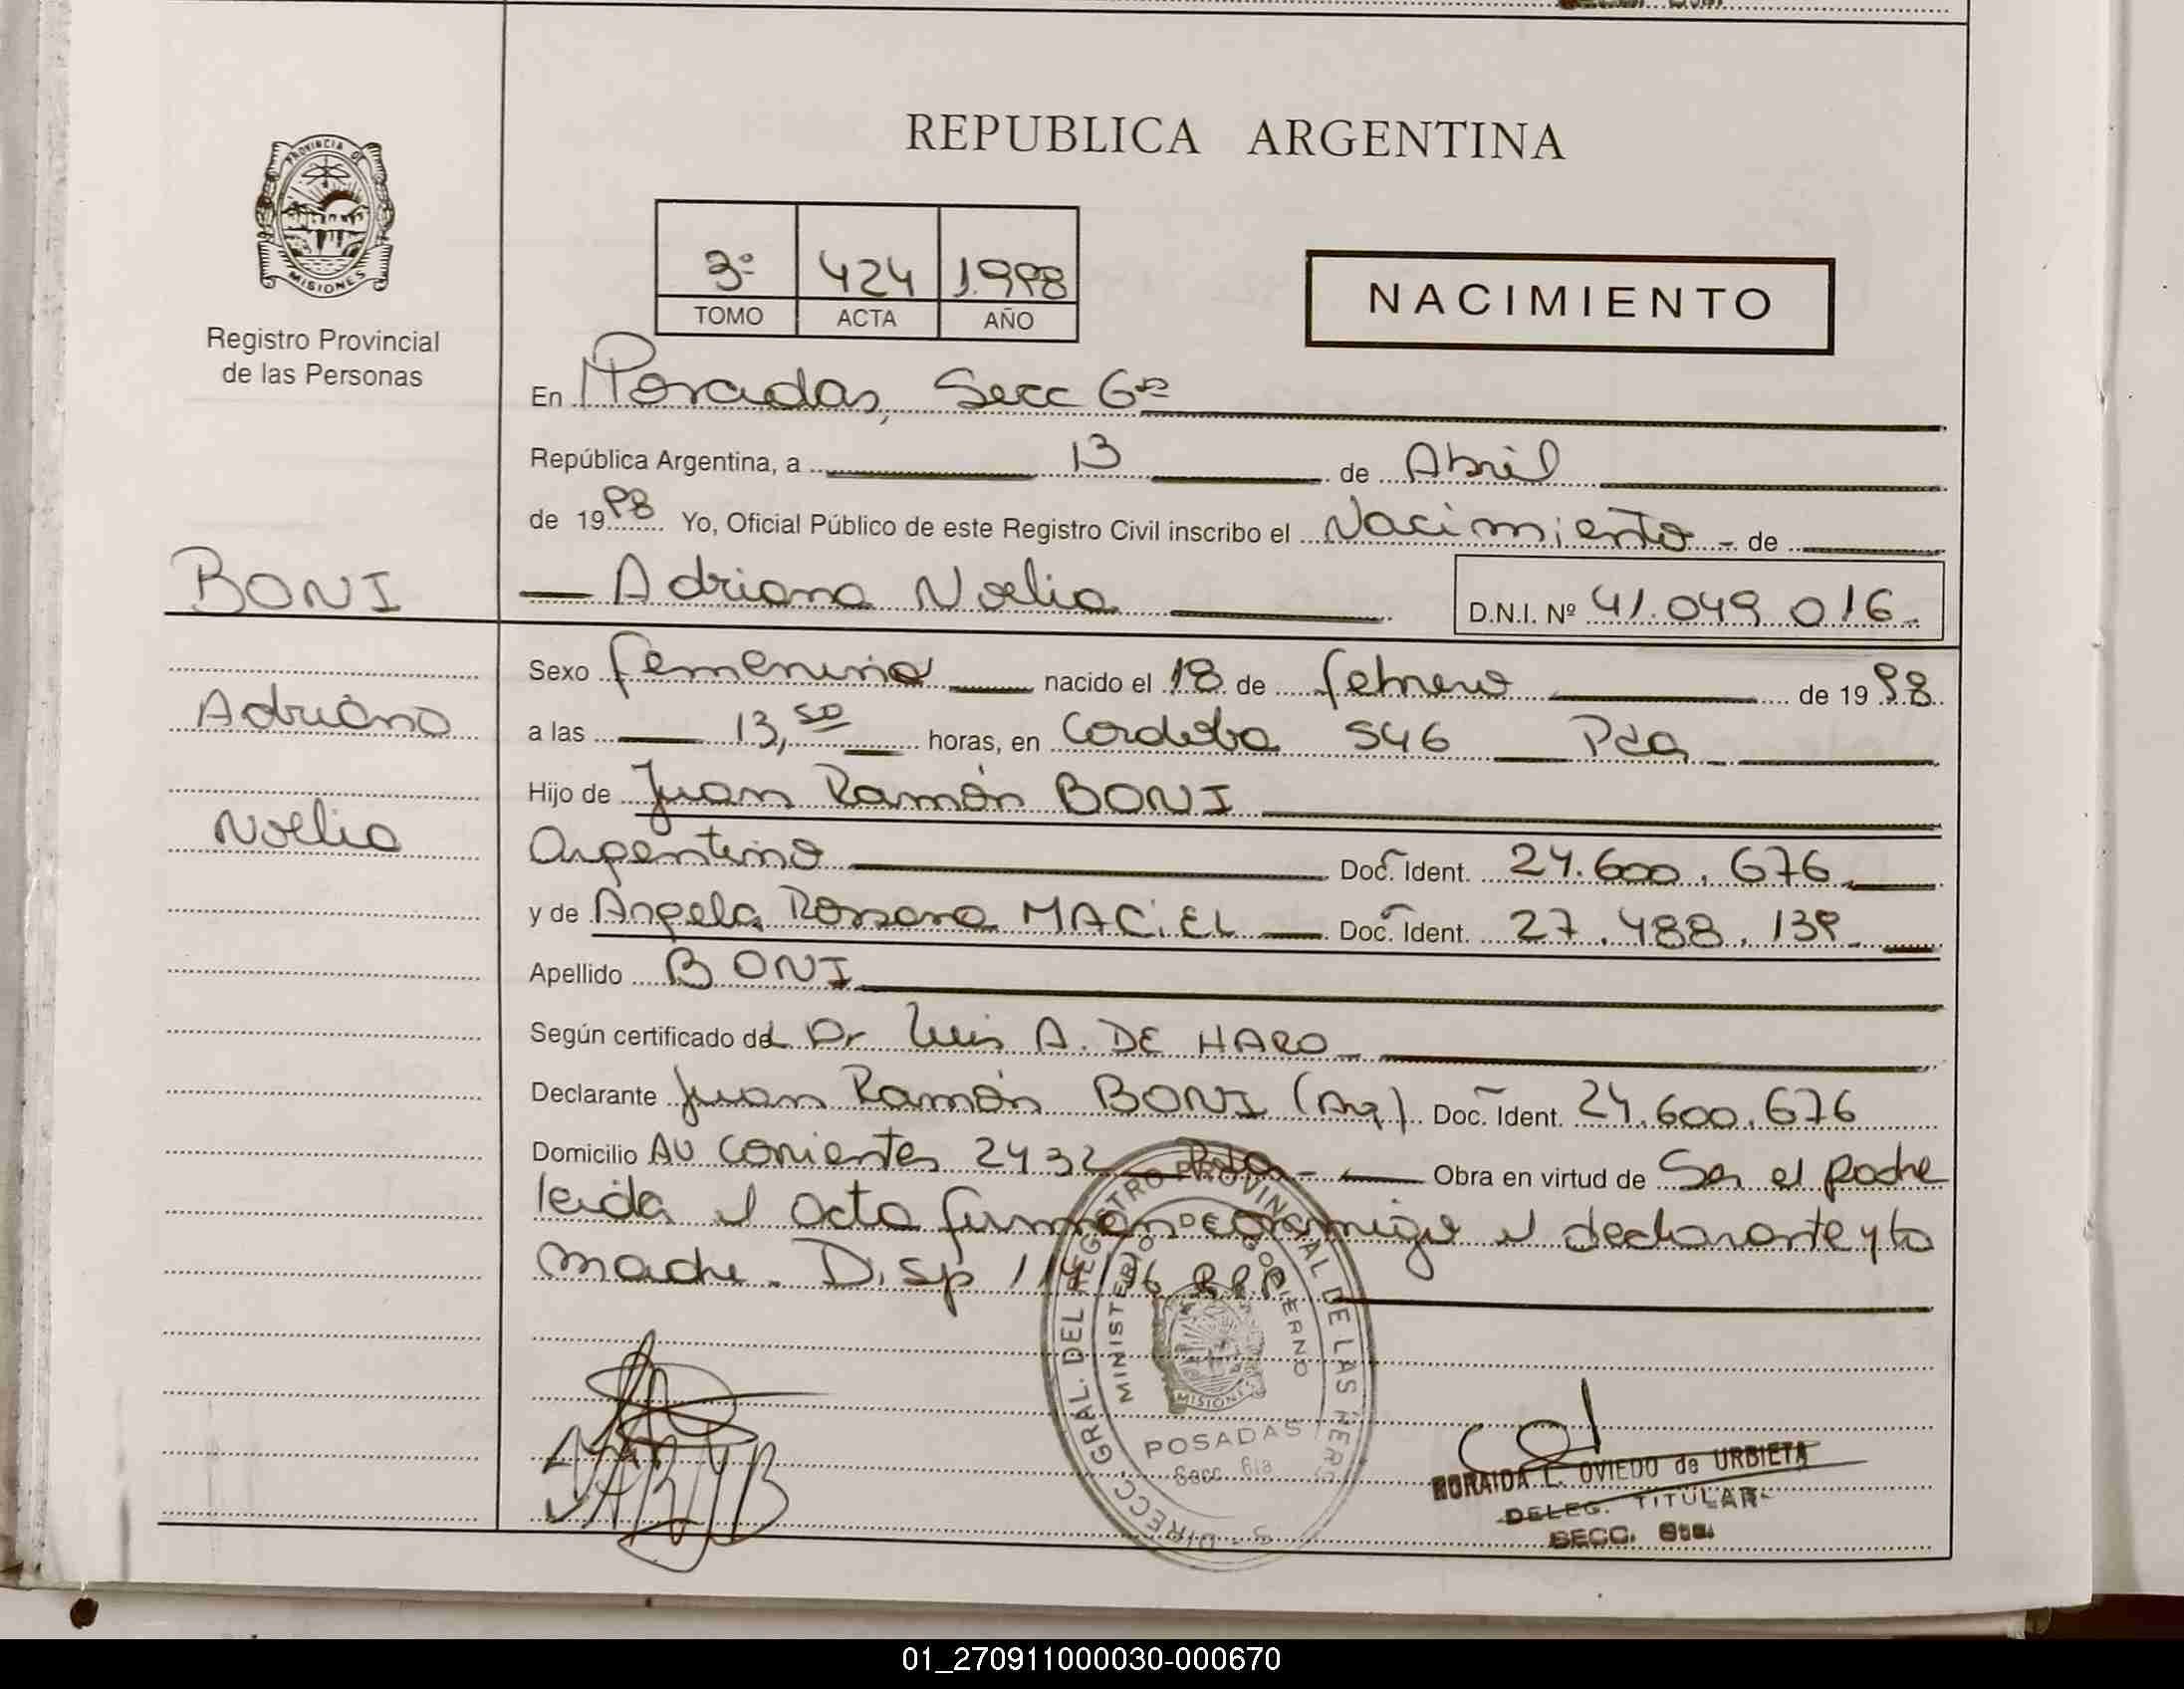 REPUBLICA ARGENTINA
PROVINCIA DE
MISIONES
Registro Provincial
de las Personas
3º 424 1.998
TOMO ACTA AÑO
NACIMIENTO
En Posadas, Secc 6ta
República Argentina, a 13 de Abril
de 1998 Yo, Oficial Público de este Registro Civil inscribo el Nacimiento - de
BONI
Adriana Noelia D.N.I. Nº 41.049.016.-
Adriana
Noelia
Sexo femenino nacido el 18 de febrero de 1998
a las 13,50 horas, en Cordoba 546 Pdas
Hijo de Juan Ramón BONI
Argentino Doc. Ident. 24.600.676
y de Angela Rossana MACIEL Doc. Ident. 27.488.139.
Apellido BONI
Según certificado del Dr Luis A. DE HARO
Declarante Juan Ramón BONI (Arg) Doc. Ident. 24.600.676
Domicilio Av Corrientes 2432 Pdas Obra en virtud de Ser el padre
leida el acta firman conmigo el declarante y la
madre. Disp 114/96 R.P.P.
DIRECC. GRAL. DEL REGISTRO PROVINCIAL DE LAS PERS
MINISTERIO DE GOBIERNO
MISIONES
POSADAS
Secc. 6ta
ZORAIDA L. OVIEDO de URBIETA
DELEG. TITULAR
SECC. 6ta.
01_270911000030-000670